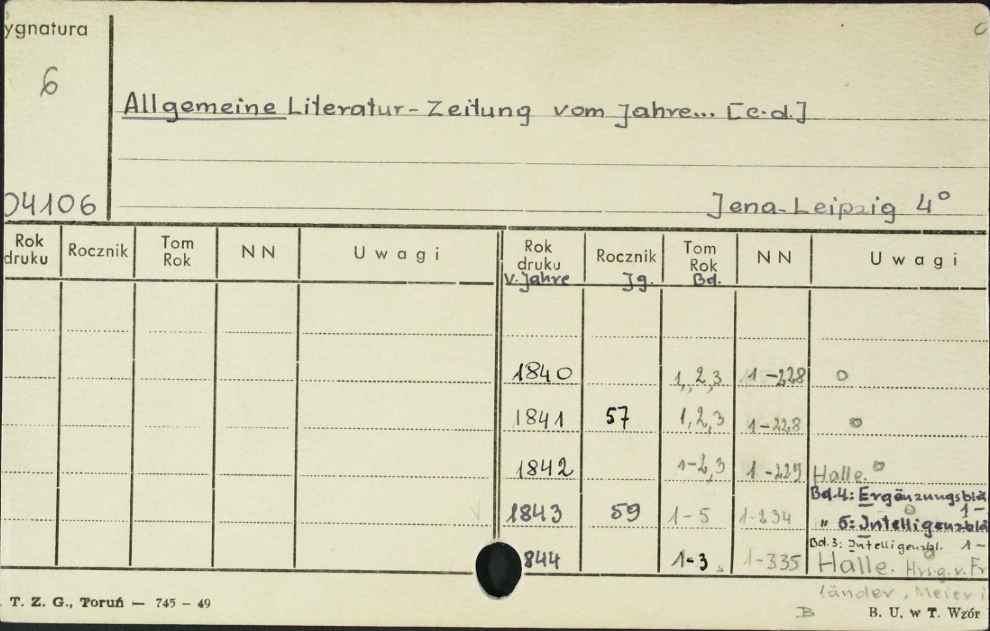 ygnatura
6
Allgemeine Literatur-Zeitung vom Jahre... [c.d.]
04106
Jena-Leipzig 4°
Rok druku Rocznik Tom Rok NN Uwagi Rok druku Rocznik Tom Rok NN Uwagi
V. Jahre Jg. Bd.
1840 1,2,3 1-228 o
1841 57 1,2,3 1-228 o
1842 1-2,3 1-229 Halle. o
Bd.4: Ergänzungsblä
1843 59 1-5 1-234 " 5: Intelligenzblä 1-
Bd.3: Intelligenzbl. 1-
844 1-3 1-335 Halle. Hrsg. v. Fr
länder, Meier i
. T. Z. G., Toruń — 745 – 49 B B. U. w T. Wzór